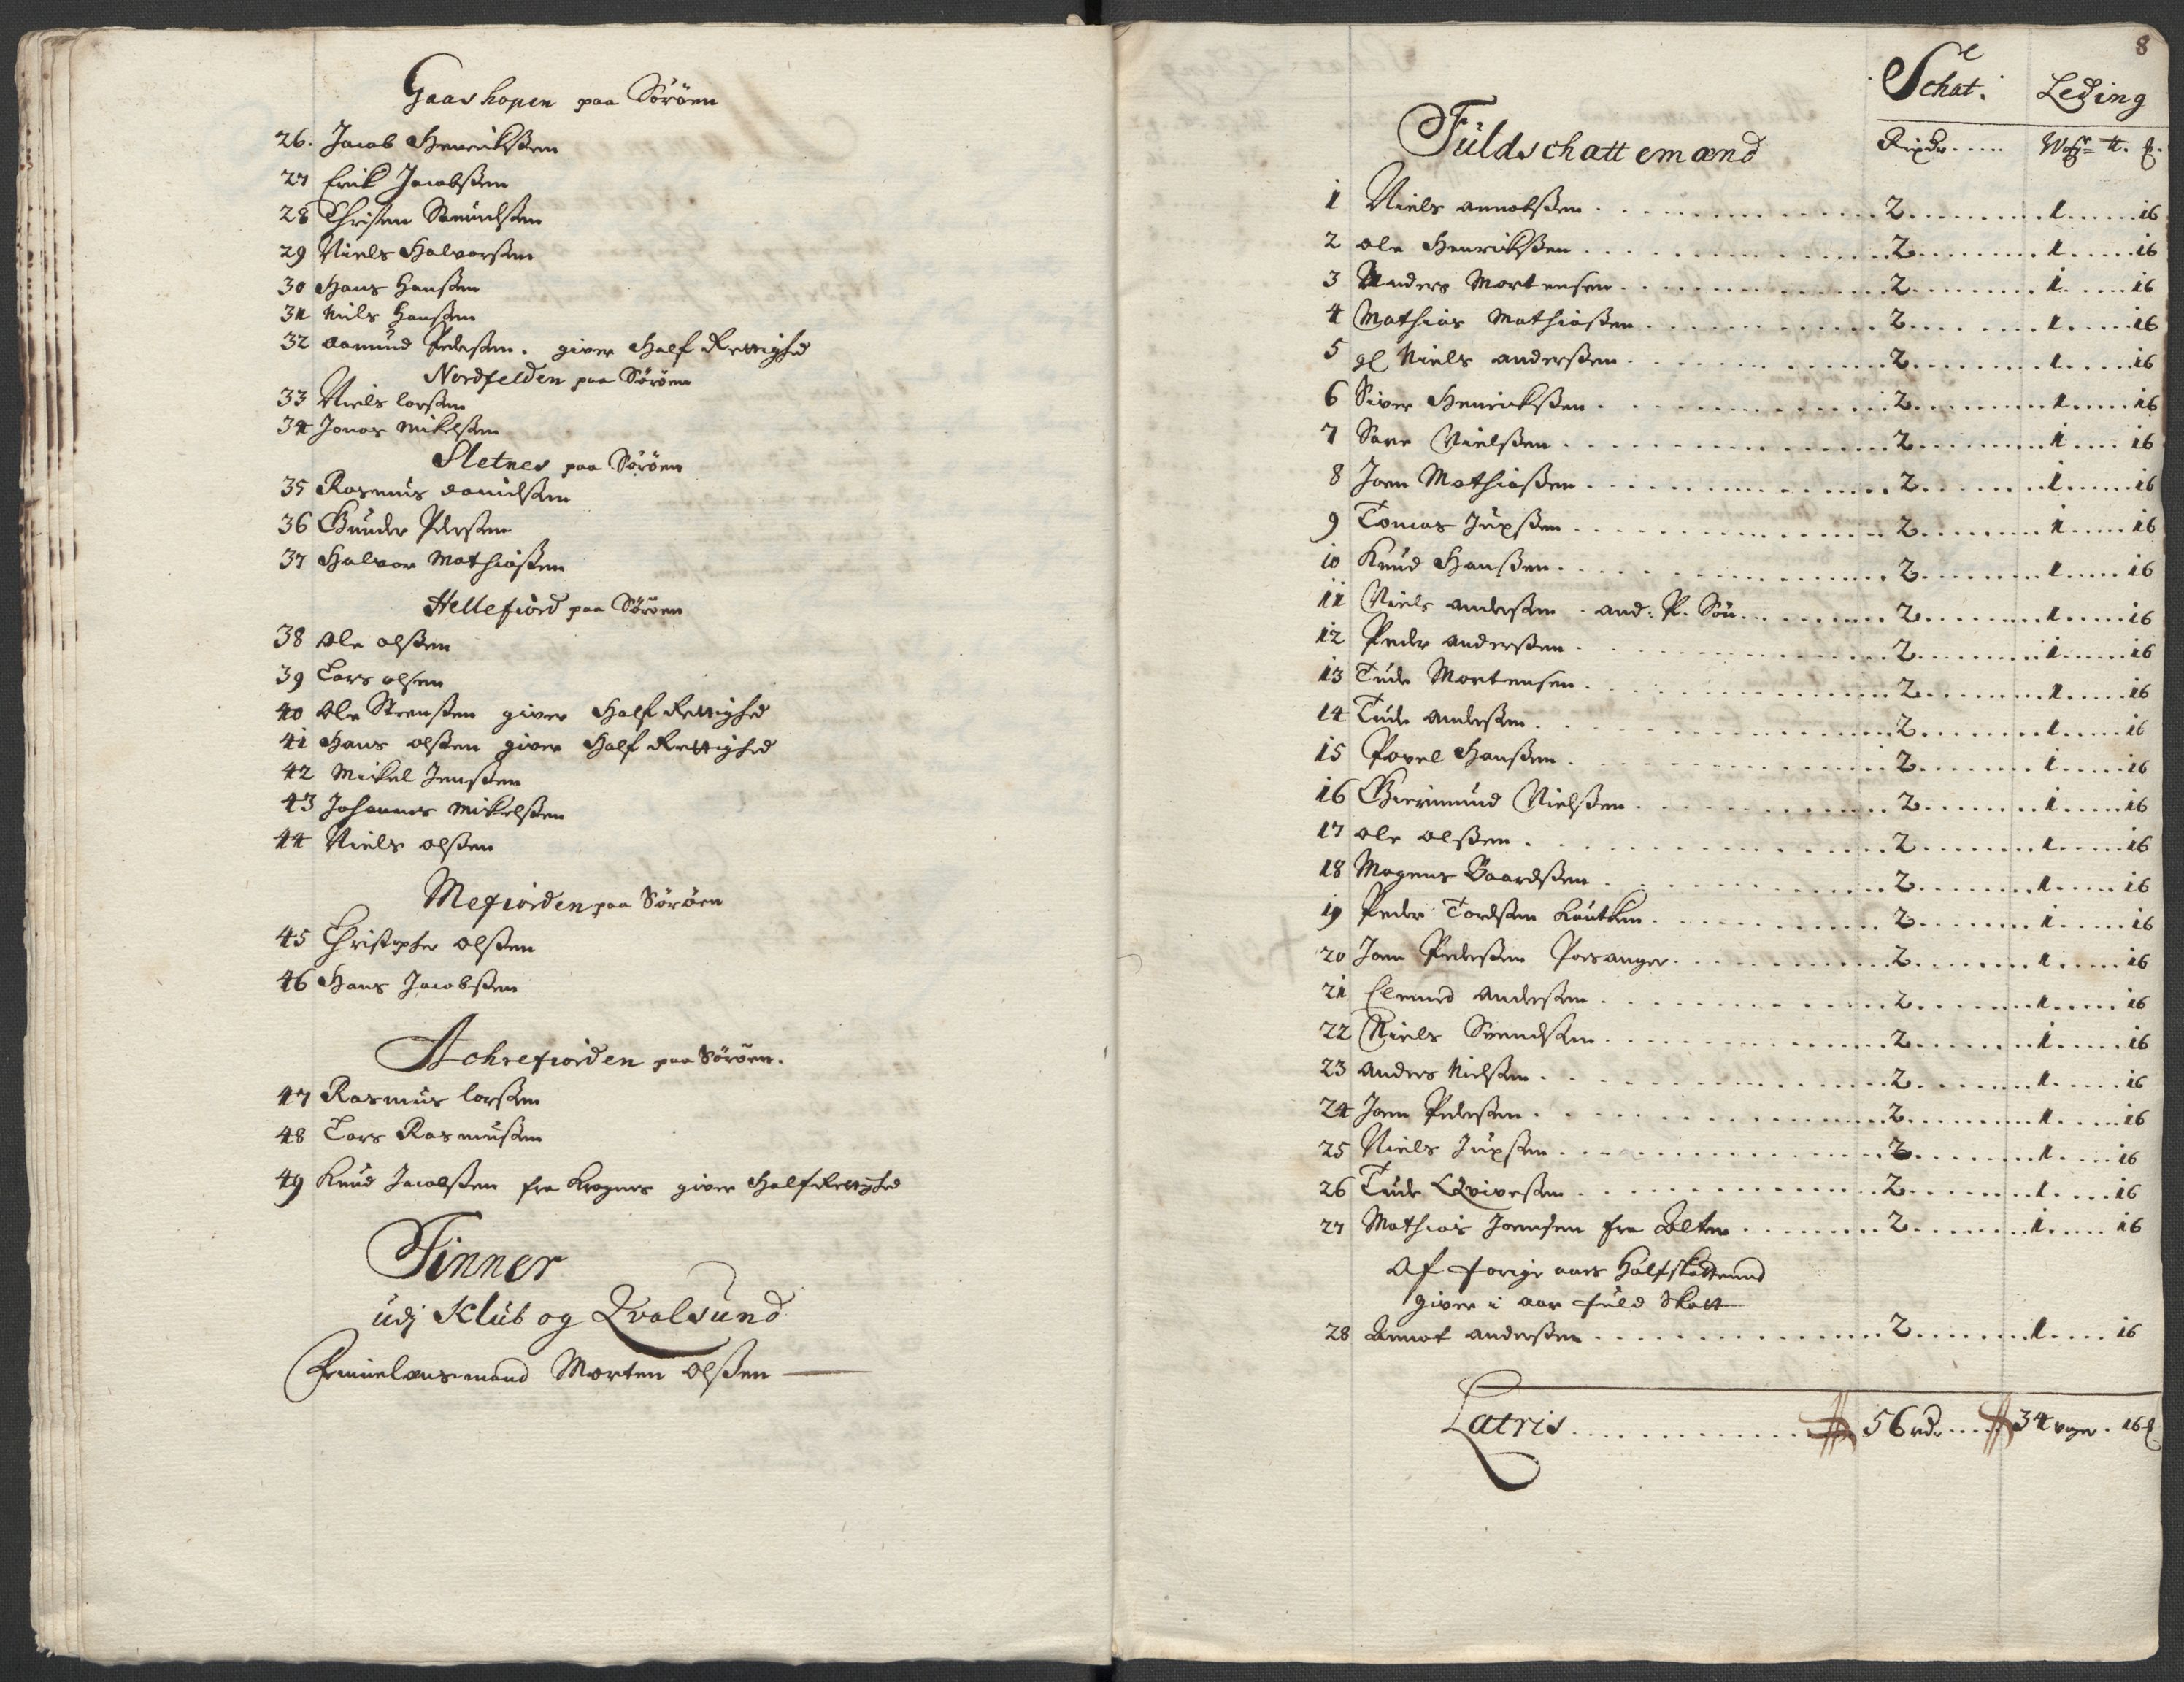 Gaashopen paa Söröen
26. Jacob Henrichßen
27 Erik Jacobßen
28 Christen Samuelßen
29 Niels Halvorßen
30 Hans Hanßen
31 Niels Hanßen
32 Aamund Pederßen. giver Half Rettighed
Nordfelden paa Söröen
33 Niels Larßen
34 Jonas Mikelßen
Sletnes paa Söröen
35 Rasmus Danielßen
36 Gunder Pederßen
37 Halvor Mathiaßen
Hellefiord paa Söröen
38 Ole Olßen
39 Lars Olsen
40 Ole Steenßen giver Half Rettighed
41 Hans Olßen giver Half Rettighed
42 Mickel Jenßen
43 Johannes Mickelßen
44 Niels Olßen
Mefiorden paa Söröen
45 Christopher Olßen
46 Hans Jacobßen
Achrefiorden paa Söröen.
47 Rasmus Larßen
48 Lars Rasmußen
49 Knud Jacobßen fra giver Half Rettighed
Finner
udj Klub og Qvalsund
Morten Olßen
8
Schat. Leding
Rixdr..... Woger ℔.
Füldschattemænd
1 Niels ... 2 ... 1 ... 16
2 Ole Henrickßen ... 2 ... 1 ... 16
3 Anders Mortensen ... 2 ... 1 ... 16
4 Mathias Mathiaßen ... 2 ... 1 ... 16
5 gl Niels Anderßen ... 2 ... 1 ... 16
6 Siver Henrickßen ... 2 ... 1 ... 16
7 Sare Nielßen ... 2 ... 1 ... 16
8 Joen Mathiaßen ... 2 ... 1 ... 16
9 Tomas Jüpßen ... 2 ... 1 ... 16
10 Knud Hanßen ... 2 ... 1 ... 16
11 Niels Anderßen. And: P. Sön ... 2 ... 1 ... 16
12 Peder Anderßen ... 2 ... 1 ... 16
13 Tude Mortensen ... 2 ... 1 ... 16
14 Tude Anderßen ... 2 ... 1 ... 16
15 Povel Hanßen ... 2 ... 1 ... 16
16 Giermund Nielßen ... 2 ... 1 ... 16
17 Ole Olßen ... 2 ... 1 ... 16
18 Mogens Baardßen ... 2 ... 1 ... 16
19 Peder Tordßen ... 2 ... 1 ... 16
20 Joen Pederßen Porsanger ... 2 ... 1 ... 16
21 Clemed Anderßen ... 2 ... 1 ... 16
22 Niels Svendßen ... 2 ... 1 ... 16
23 Anders Nielßen ... 2 ... 1 ... 16
24 Joen Pederßen ... 2 ... 1 ... 16
25 Niels Jüpßen ... 2 ... 1 ... 16
26 Tude Qviveßen ... 2 ... 1 ... 16
27 Mathias Joensen fra Alten ... 2 ... 1 ... 16
Af forige aars Halfskattmend
giver i aar fuld Skatt
28 Anderßen ... 2 ... 1 ... 16
Latris ... 56 rdr ... 34 voger. 16